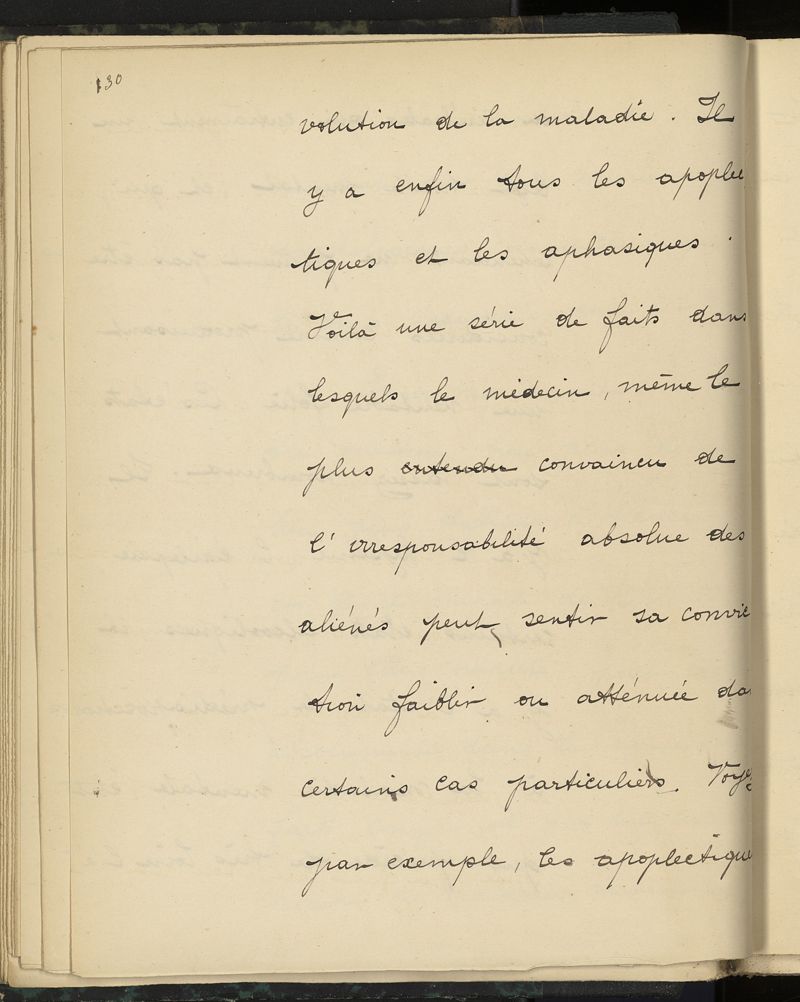 130
volution de la maladie. Il
y a enfin tous les apoplec
tiques et les aphasiques.
Voilà une série de faits dans
lesquels le médecin, même le
plus entendu convaincu de
l'irresponsabilité absolue des
aliénés peut sentir sa convic
tion faiblir ou atténuée da
certains cas particuliers. Voyez
par exemple, les apoplectique